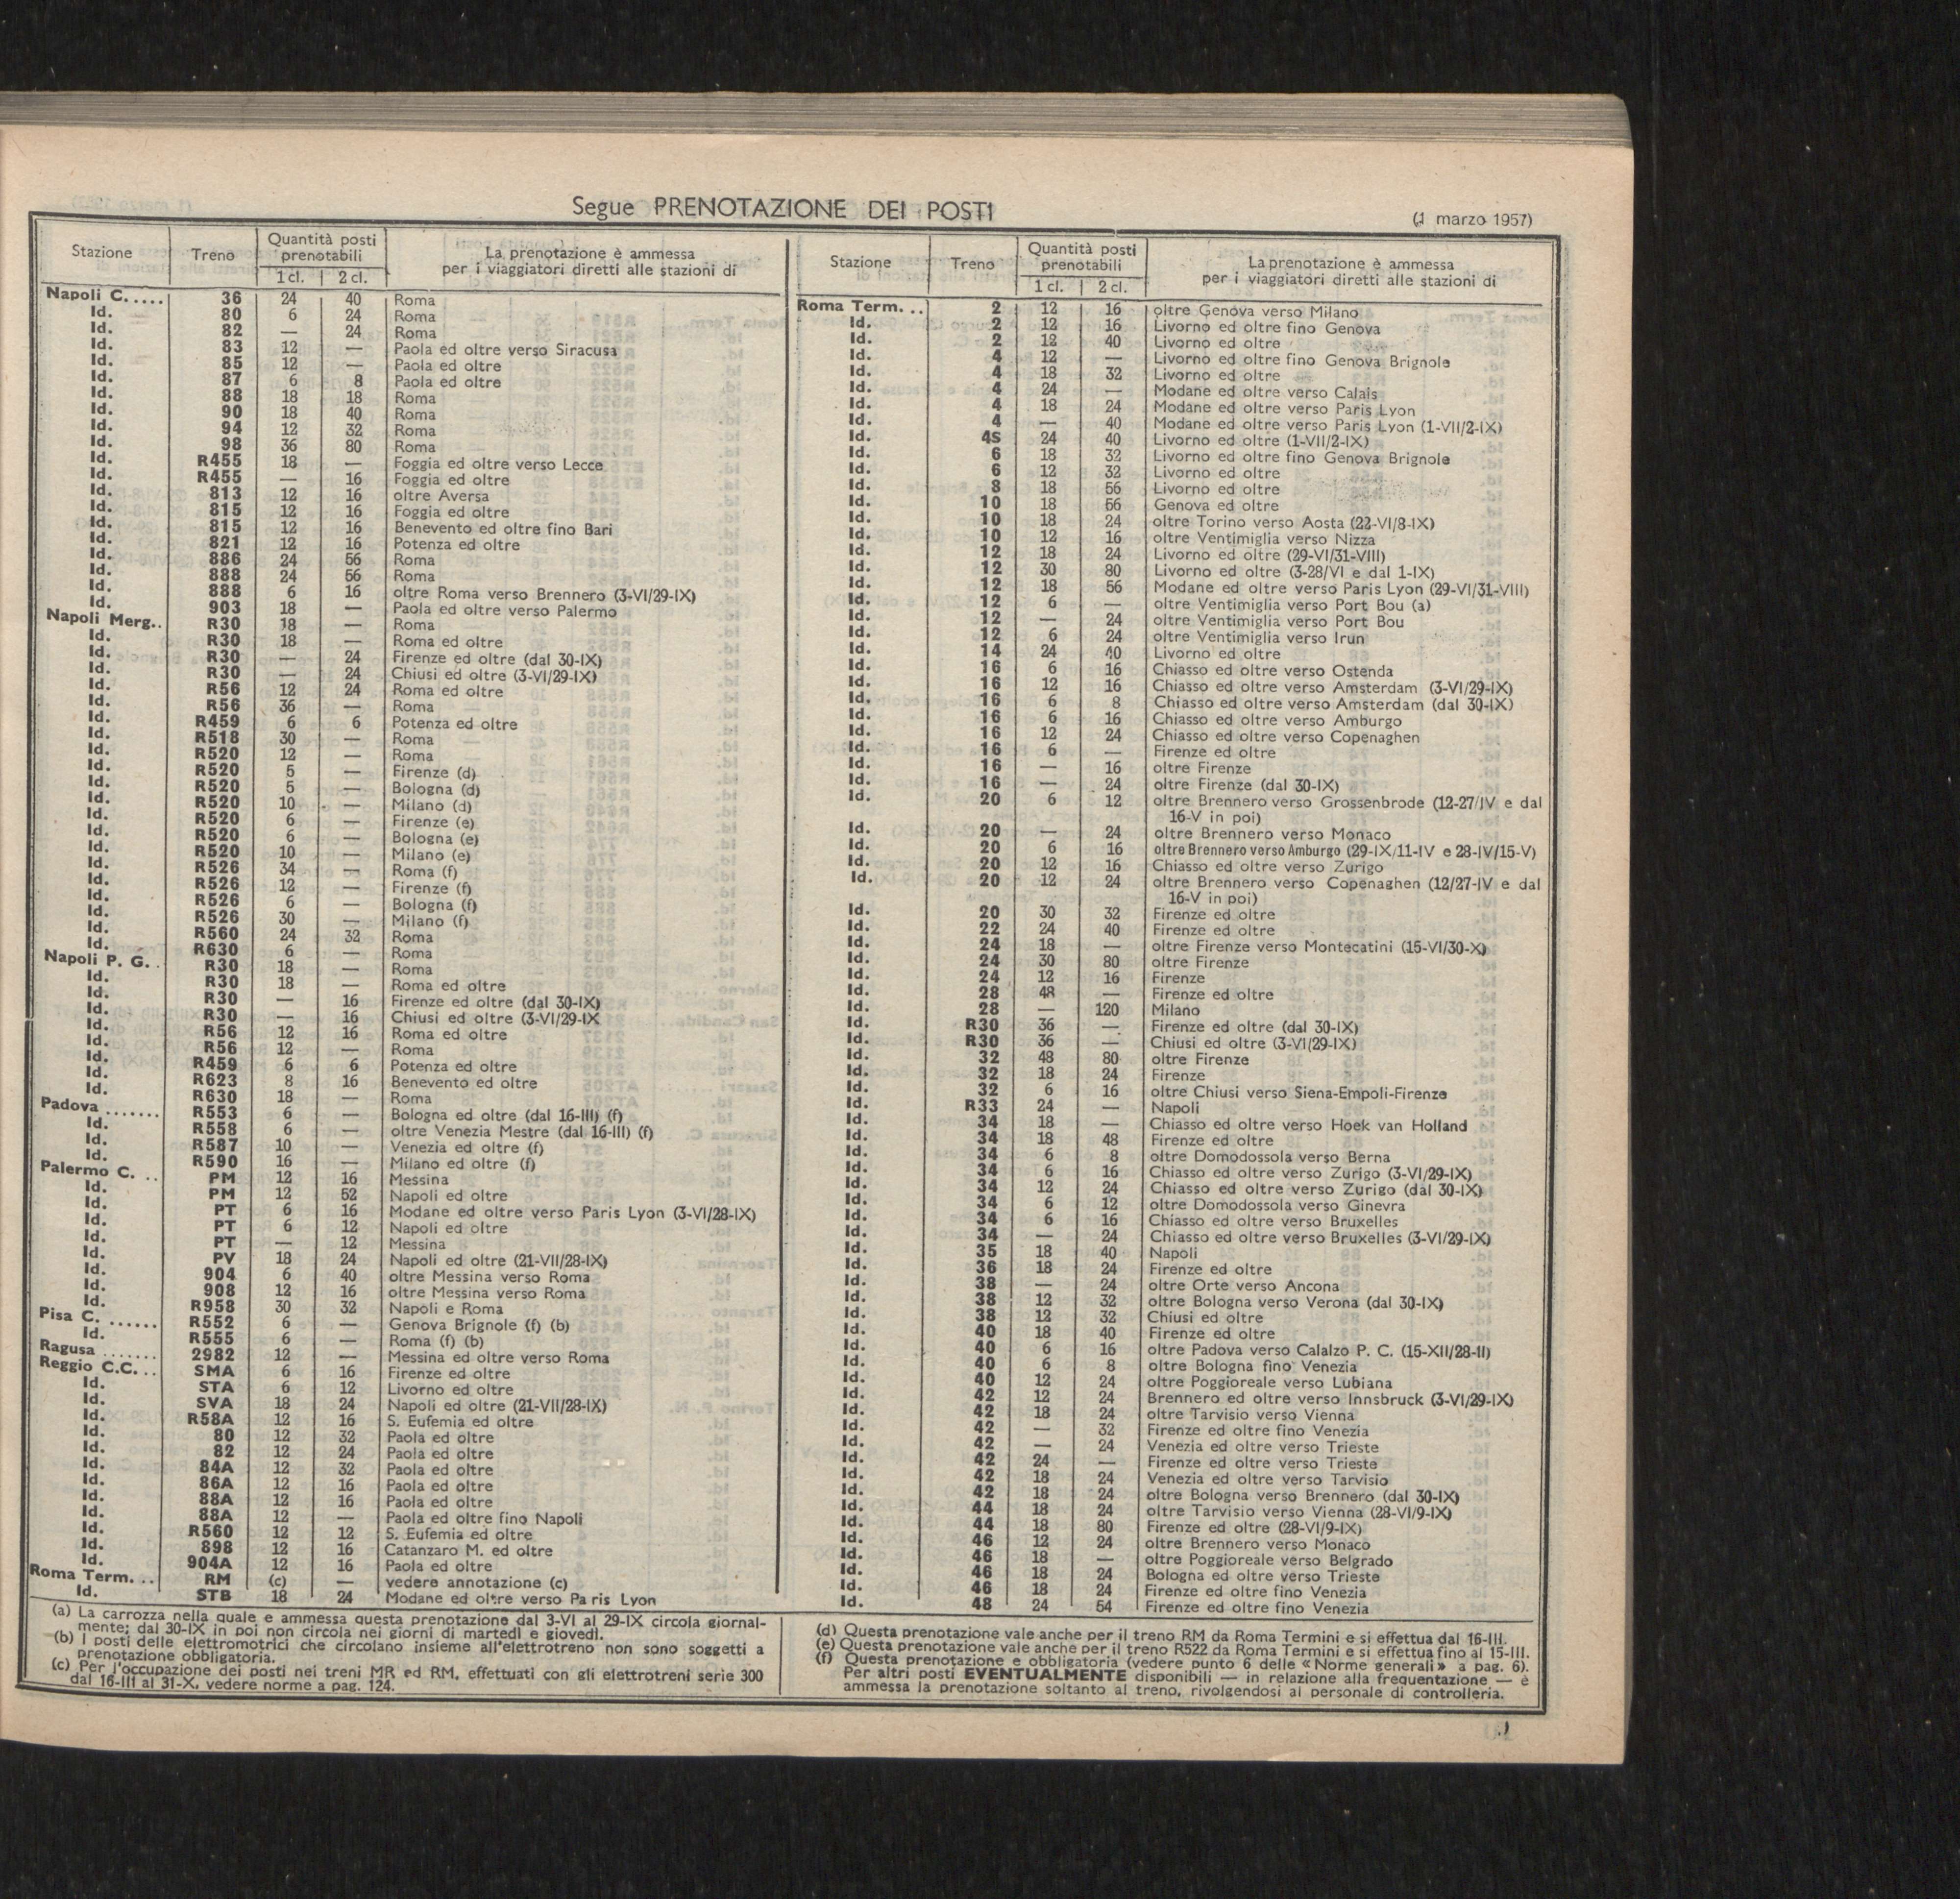 Segue PRENOTAZIONE DEI POSTI
(1 marzo 1957)
Stazione Treno Quantità posti prenotabili 1 cl. 2 cl. La prenotazione è ammessa per i viaggiatori diretti alle stazioni di
Napoli C. ..... 36 24 40 Roma
Id. 80 6 24 Roma
Id. 82 — 24 Roma
Id. 83 12 — Paola ed oltre verso Siracusa
Id. 85 12 — Paola ed oltre
Id. 87 6 8 Paola ed oltre
Id. 88 18 18 Roma
Id. 90 18 40 Roma
Id. 94 12 32 Roma
Id. 98 36 80 Roma
Id. R455 18 — Foggia ed oltre verso Lecce
Id. R455 — 16 Foggia ed oltre
Id. 813 12 16 oltre Aversa
Id. 815 12 16 Foggia ed oltre
Id. 815 12 16 Benevento ed oltre fino Bari
Id. 821 12 16 Potenza ed oltre
Id. 886 24 56 Roma
Id. 888 24 56 Roma
Id. 888 6 16 oltre Roma verso Brennero (3-VI/29-IX)
Id. 903 18 — Paola ed oltre verso Palermo
Napoli Merg.. R30 18 — Roma
Id. R30 18 — Roma ed oltre
Id. R30 — 24 Firenze ed oltre (dal 30-IX)
Id. R30 — 24 Chiusi ed oltre (3-VI/29-IX)
Id. R56 12 24 Roma ed oltre
Id. R56 36 — Roma
Id. R459 6 6 Potenza ed oltre
Id. R518 30 — Roma
Id. R520 12 — Roma
Id. R520 5 — Firenze (d)
Id. R520 5 — Bologna (d)
Id. R520 10 — Milano (d)
Id. R520 6 — Firenze (e)
Id. R520 6 — Bologna (e)
Id. R520 10 — Milano (e)
Id. R526 34 — Roma (f)
Id. R526 12 — Firenze (f)
Id. R526 6 — Bologna (f)
Id. R526 30 — Milano (f)
Id. R560 24 32 Roma
Id. R630 6 — Roma
Napoli P. G. . R30 18 — Roma
Id. R30 18 — Roma ed oltre
Id. R30 — 16 Firenze ed oltre (dal 30-IX)
Id. R30 — 16 Chiusi ed oltre (3-VI/29-IX
Id. R56 12 16 Roma ed oltre
Id. R56 12 — Roma
Id. R459 6 6 Potenza ed oltre
Id. R623 8 16 Benevento ed oltre
Id. R630 18 — Roma
Padova ....... R553 6 — Bologna ed oltre (dal 16-III) (f)
Id. R558 6 — oltre Venezia Mestre (dal 16-III) (f)
Id. R587 10 — Venezia ed oltre (f)
Id. R590 16 — Milano ed oltre (f)
Palermo C. .. PM 12 16 Messina
Id. PM 12 52 Napoli ed oltre
Id. PT 6 16 Modane ed oltre verso Paris Lyon (3-VI/28-IX)
Id. PT 6 12 Napoli ed oltre
Id. PT — 12 Messina
Id. PV 18 24 Napoli ed oltre (21-VII/28-IX)
Id. 904 6 40 oltre Messina verso Roma
Id. 908 12 16 oltre Messina verso Roma
Id. R958 30 32 Napoli e Roma
Pisa C. ...... R552 6 — Genova Brignole (f) (b)
Id. R555 6 — Roma (f) (b)
Ragusa ....... 2982 12 — Messina ed oltre verso Roma
Reggio C.C. .. SMA 6 16 Firenze ed oltre
Id. STA 6 12 Livorno ed oltre
Id. SVA 18 24 Napoli ed oltre (21-VII/28-IX)
Id. R58A 12 16 S. Eufemia ed oltre
Id. 80 12 32 Paola ed oltre
Id. 82 12 24 Paola ed oltre
Id. 84A 12 32 Paola ed oltre
Id. 86A 12 16 Paola ed oltre
Id. 88A 12 16 Paola ed oltre
Id. 88A 12 — Paola ed oltre fino Napoli
Id. R560 12 12 S. Eufemia ed oltre
Id. 898 12 16 Catanzaro M. ed oltre
Id. 904A 12 16 Paola ed oltre
Roma Term. .. RM (c) — vedere annotazione (c)
Id. STB 18 24 Modane ed oltre verso Paris Lyon
Stazione Treno Quantità posti prenotabili 1 cl. 2 cl. La prenotazione è ammessa per i viaggiatori diretti alle stazioni di
Roma Term. .. 2 12 16 oltre Genova verso Milano
Id. 2 12 16 Livorno ed oltre fino Genova
Id. 2 18 40 Livorno ed oltre
Id. 4 12 — Livorno ed oltre fino Genova Brignole
Id. 4 18 32 Livorno ed oltre
Id. 4 24 — Modane ed oltre verso Calais
Id. 4 18 24 Modane ed oltre verso Paris Lyon
Id. 4 — 40 Modane ed oltre verso Paris Lyon (1-VII/2-IX)
Id. 4S 24 40 Livorno ed oltre (1-VII/2-IX)
Id. 6 18 32 Livorno ed oltre fino Genova Brignole
Id. 6 12 32 Livorno ed oltre
Id. 8 18 56 Livorno ed oltre
Id. 10 18 56 Genova ed oltre
Id. 10 18 24 oltre Torino verso Aosta (22-VI/8-IX)
Id. 10 12 16 oltre Ventimiglia verso Nizza
Id. 12 18 24 Livorno ed oltre (29-VI/31-VIII)
Id. 12 30 80 Livorno ed oltre (3-28/VI e dal 1-IX)
Id. 12 18 56 Modane ed oltre verso Paris Lyon (29-VI/31-VIII)
Id. 12 6 — oltre Ventimiglia verso Port Bou (a)
Id. 12 — 24 oltre Ventimiglia verso Port Bou
Id. 12 6 24 oltre Ventimiglia verso Irun
Id. 14 24 40 Livorno ed oltre
Id. 16 6 16 Chiasso ed oltre verso Ostenda
Id. 16 12 16 Chiasso ed oltre verso Amsterdam (3-VI/29-IX)
Id. 16 6 8 Chiasso ed oltre verso Amsterdam (dal 30-IX)
Id. 16 6 16 Chiasso ed oltre verso Amburgo
Id. 16 12 24 Chiasso ed oltre verso Copenaghen
Id. 16 6 — Firenze ed oltre
Id. 16 — 16 oltre Firenze
Id. 16 — 24 oltre Firenze (dal 30-IX)
Id. 20 6 12 oltre Brennero verso Grossenbrode (12-27/IV e dal
16-V in poi)
Id. 20 — 24 oltre Brennero verso Monaco
Id. 20 6 16 oltre Brennero verso Amburgo (29-IX/11-IV e 28-IV/15-V)
Id. 20 12 16 Chiasso ed oltre verso Zurigo
Id. 20 12 24 oltre Brennero verso Copenaghen (12/27-IV e dal
16-V in poi)
Id. 20 30 32 Firenze ed oltre
Id. 22 24 40 Firenze ed oltre
Id. 24 18 — oltre Firenze verso Montecatini (15-VI/30-X)
Id. 24 30 80 oltre Firenze
Id. 24 12 16 Firenze
Id. 28 48 — Firenze ed oltre
Id. 28 — 120 Milano
Id. R30 36 — Firenze ed oltre (dal 30-IX)
Id. R30 36 — Chiusi ed oltre (3-VI/29-IX)
Id. 32 48 80 oltre Firenze
Id. 32 18 24 Firenze
Id. 32 6 16 oltre Chiusi verso Siena-Empoli-Firenze
Id. R33 24 — Napoli
Id. 34 18 — Chiasso ed oltre verso Hoek van Holland
Id. 34 18 48 Firenze ed oltre
Id. 34 6 8 oltre Domodossola verso Berna
Id. 34 6 16 Chiasso ed oltre verso Zurigo (3-VI/29-IX)
Id. 34 12 24 Chiasso ed oltre verso Zurigo (dal 30-IX)
Id. 34 6 12 oltre Domodossola verso Ginevra
Id. 34 6 16 Chiasso ed oltre verso Bruxelles
Id. 34 — 24 Chiasso ed oltre verso Bruxelles (3-VI/29-IX)
Id. 35 18 40 Napoli
Id. 36 18 24 Firenze ed oltre
Id. 38 — 24 oltre Orte verso Ancona
Id. 38 12 32 oltre Bologna verso Verona (dal 30-IX)
Id. 38 12 32 Chiusi ed oltre
Id. 40 18 40 Firenze ed oltre
Id. 40 6 16 oltre Padova verso Calalzo P. C. (15-XII/28-II)
Id. 40 6 8 oltre Bologna fino Venezia
Id. 40 12 24 oltre Poggioreale verso Lubiana
Id. 42 12 24 Brennero ed oltre verso Innsbruck (3-VI/29-IX)
Id. 42 18 24 oltre Tarvisio verso Vienna
Id. 42 — 32 Firenze ed oltre fino Venezia
Id. 42 — 24 Venezia ed oltre verso Trieste
Id. 42 24 — Firenze ed oltre verso Trieste
Id. 42 18 24 Venezia ed oltre verso Tarvisio
Id. 42 18 24 oltre Bologna verso Brennero (dal 30-IX)
Id. 44 18 24 oltre Tarvisio verso Vienna (28-VI/9-IX)
Id. 44 18 80 Firenze ed oltre (28-VI/9-IX)
Id. 46 12 24 oltre Brennero verso Monaco
Id. 46 18 — oltre Poggioreale verso Belgrado
Id. 46 18 24 Bologna ed oltre verso Trieste
Id. 46 18 24 Firenze ed oltre fino Venezia
Id. 48 24 54 Firenze ed oltre fino Venezia
(a) La carrozza nella quale e ammessa questa prenotazione dal 3-VI al 29-IX circola giornal-
mente; dal 30-IX in poi non circola nei giorni di martedì e giovedì.
(b) I posti delle elettromotrici che circolano insieme all'elettrotreno non sono soggetti a
prenotazione obbligatoria.
(c) Per l'occupazione dei posti nei treni MR ed RM, effettuati con gli elettrotreni serie 300
dal 16-III al 31-X, vedere norme a pag. 124.
(d) Questa prenotazione vale anche per il treno RM da Roma Termini e si effettua dal 16-III.
(e) Questa prenotazione vale anche per il treno R522 da Roma Termini e si effettua fino al 15-III.
(f) Questa prenotazione e obbligatoria (vedere punto 6 delle «Norme generali» a pag. 6).
Per altri posti EVENTUALMENTE disponibili — in relazione alla frequentazione — è
ammessa la prenotazione soltanto al treno, rivolgendosi al personale di controlleria.